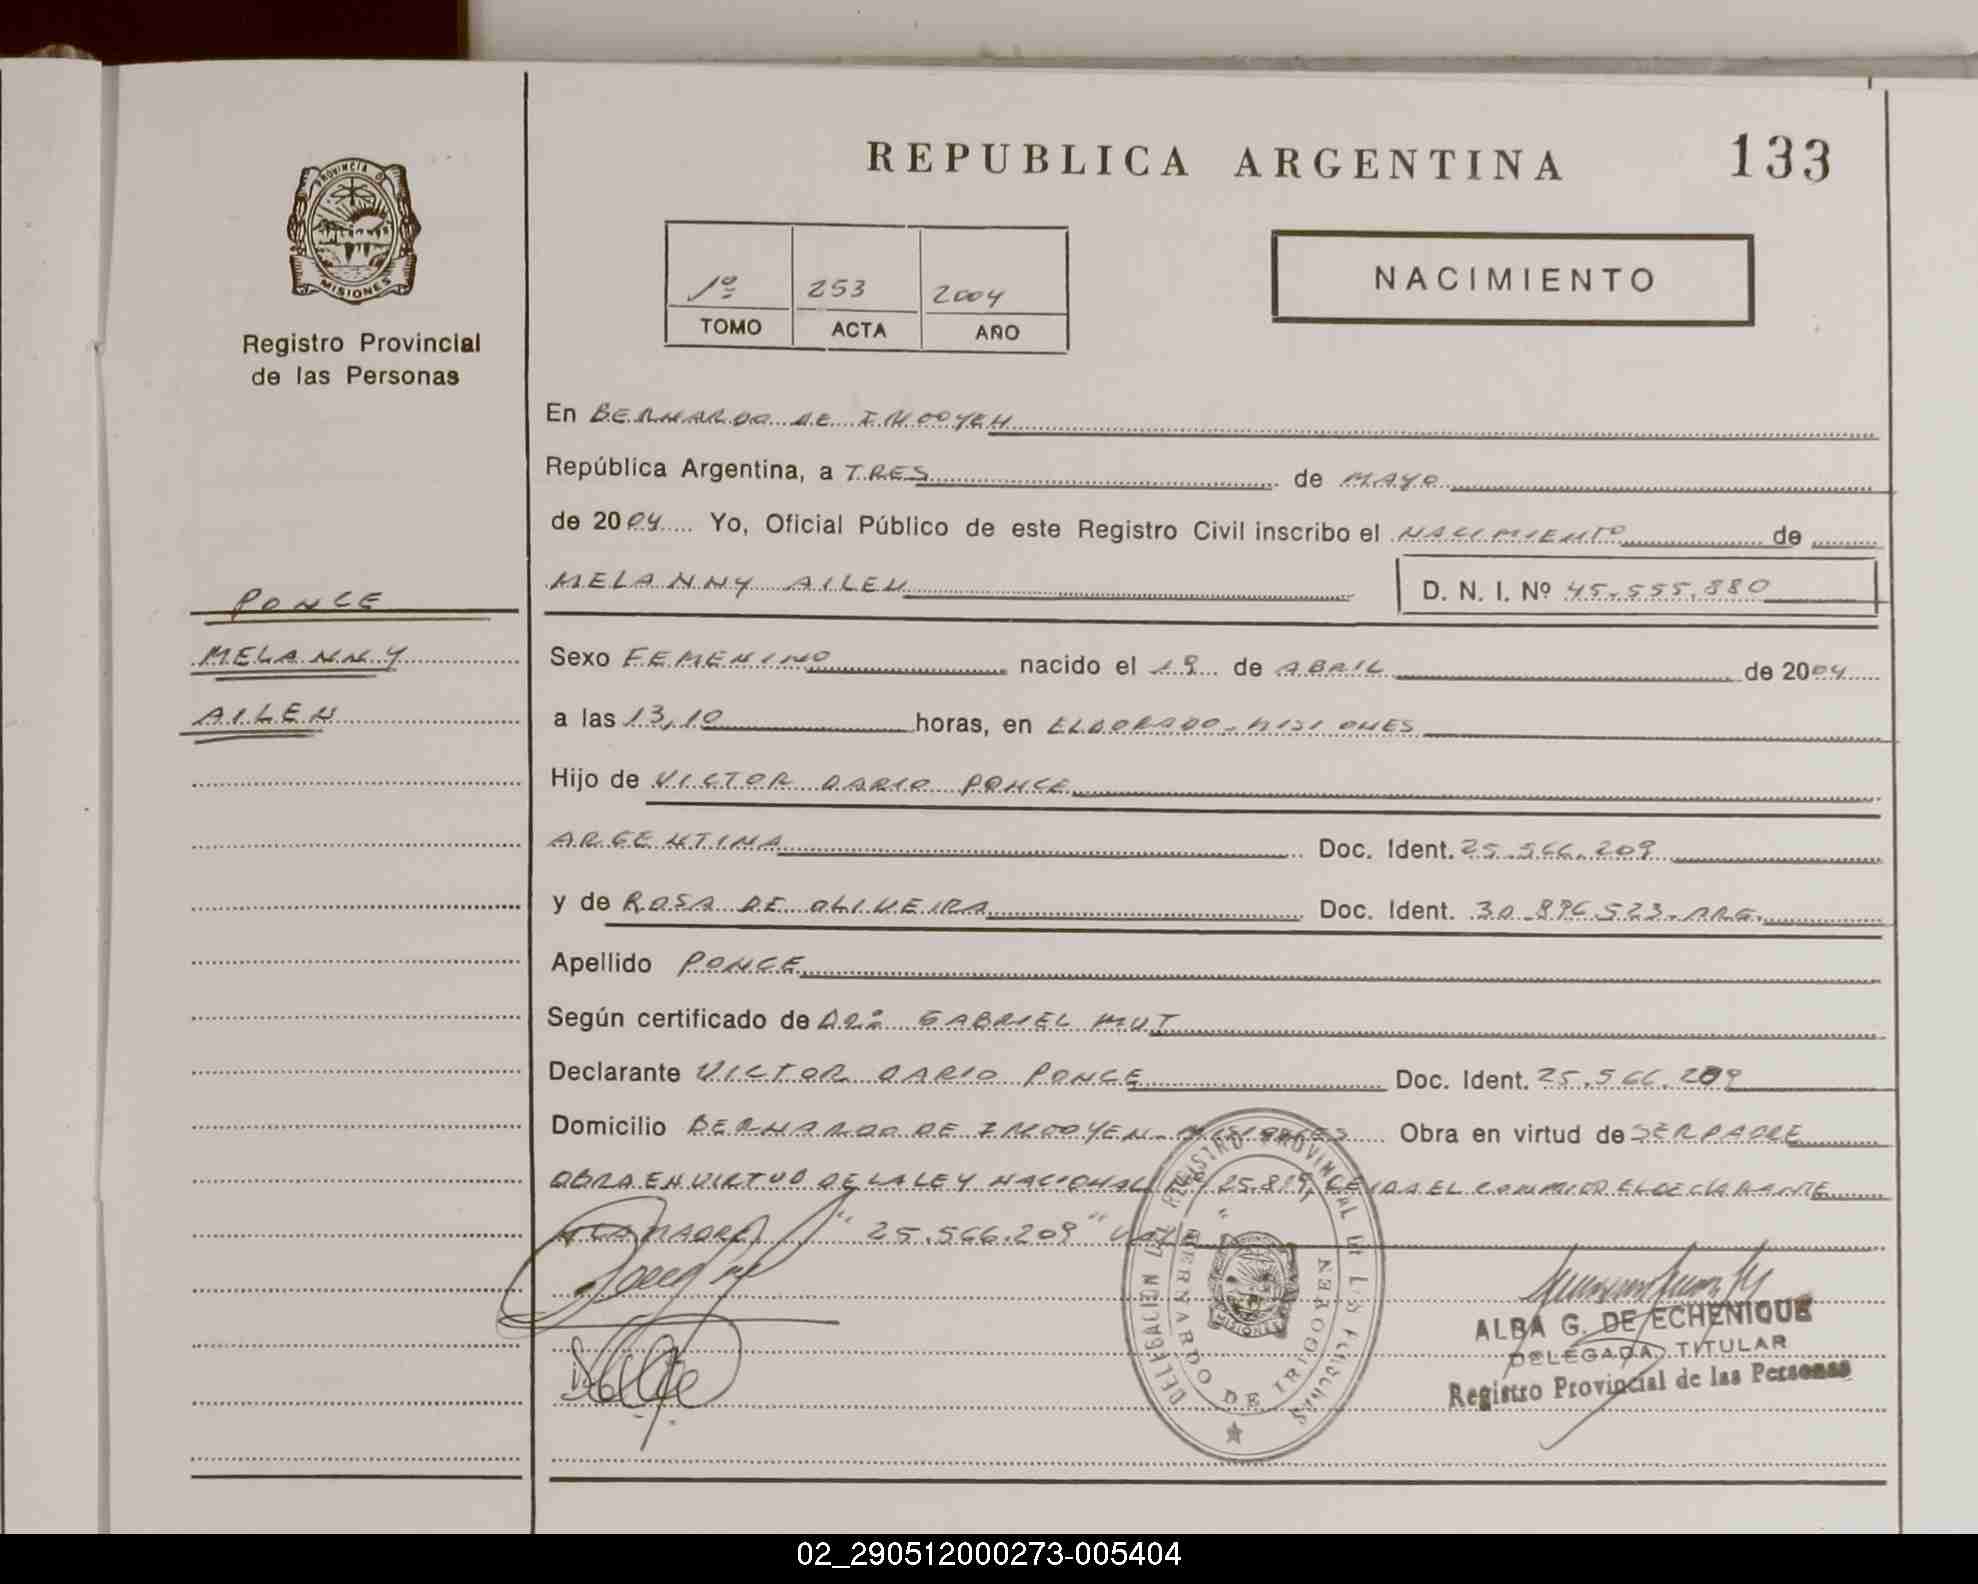 REPUBLICA ARGENTINA
133
PROVINCIA D
MISIONES
Registro Provincial
de las Personas
1º 253 2004
TOMO ACTA AÑO
NACIMIENTO
En BERNARDO DE IRIGOYEN
República Argentina, a TRES de MAYO
de 2004 Yo, Oficial Público de este Registro Civil inscribo el NACIMIENTO de
MELANNY AILEN D. N. I. Nº 45.555.880
PONCE
MELANNY
AILEN
Sexo FEMENINO nacido el 19 de ABRIL de 2004
a las 13,10 horas, en ELDORADO-MISIONES
Hijo de VICTOR DARIO PONCE
ARGENTINA Doc. Ident. 25.566.209
y de ROSA DE OLIVEIRA Doc. Ident. 30.896.523-ARG.
Apellido PONCE
Según certificado de DR: GABRIEL MUT
Declarante VICTOR DARIO PONCE Doc. Ident. 25.566.209
Domicilio BERNARDO DE IRIGOYEN-MISIONES Obra en virtud de SER PADRE
OBRA EN VIRTUD DE LA LEY NACIONAL Nº 25.819, EL DECLARANTE
LA MADRE "25.566.209" VALE
DELEGACION DEL REGISTRO PROVINCIAL DE LAS PERSONAS
BERNARDO DE IRIGOYEN
MISIONES
ALBA G. DE ECHENIQUE
DELEGADA TITULAR
Registro Provincial de las Personas
02_290512000273-005404